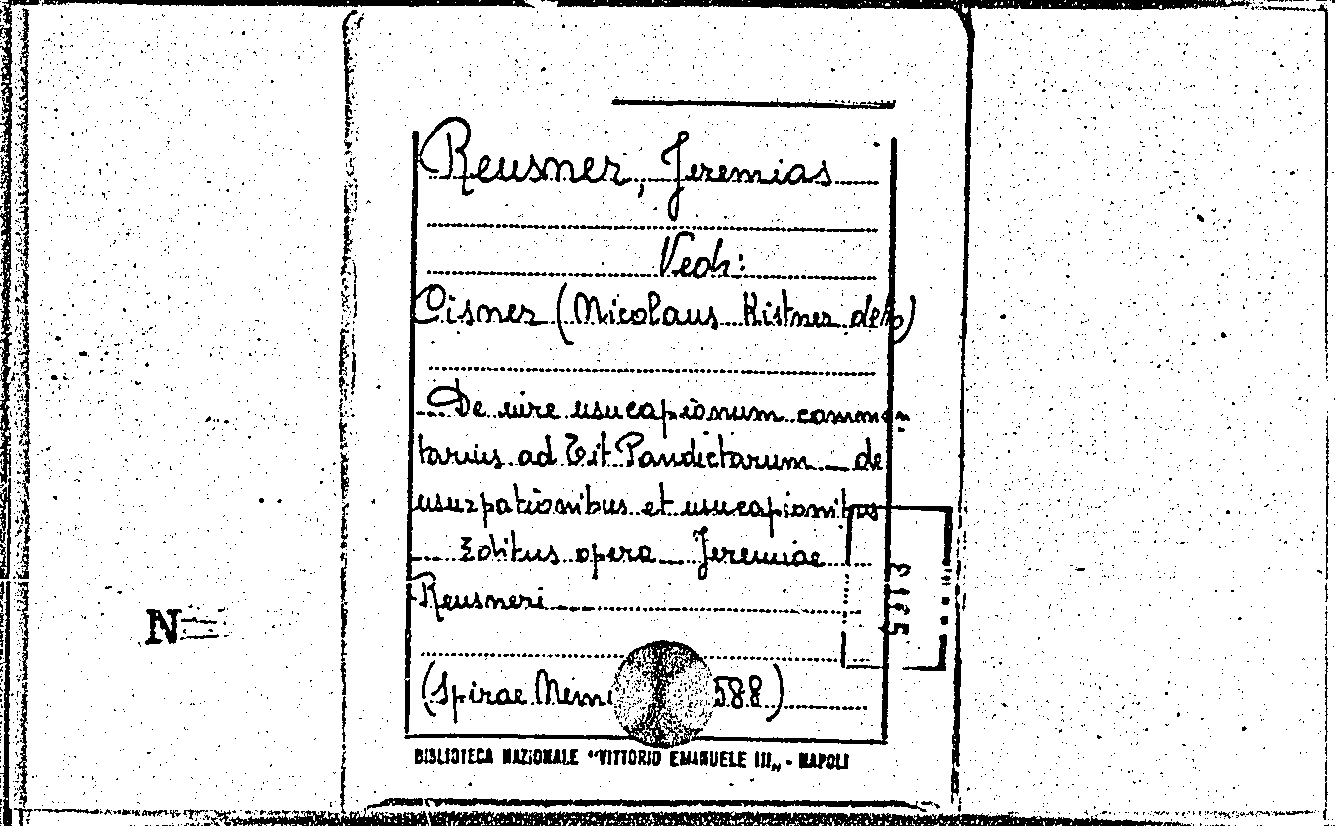 Reusner, Jeremias
Vedi:
Cisner (Nicolaus Kistner detto)
De iure usucapionum commen-
tarius ad Tit Pandectarum de
usurpationibus et usucapionibus
Editus opera Jeremiae
Reusneri
(Spirae Nemi 588)
N
BIBLIOTECA NAZIONALE "VITTORIO EMANUELE III„ - NAPOLI